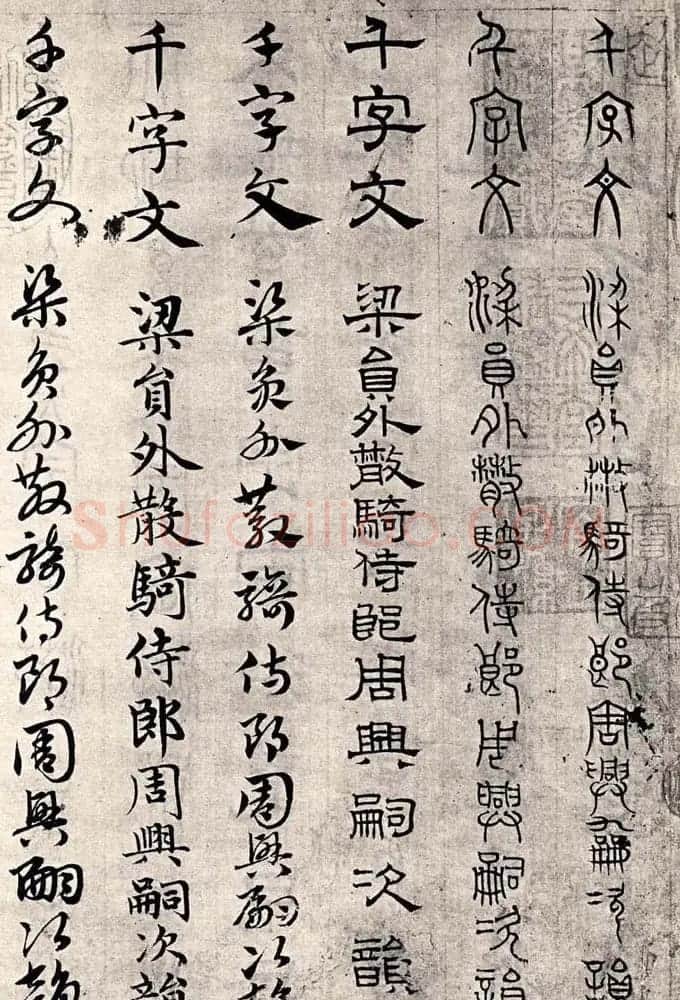 千字文 梁員外散騎侍郎周興嗣次韻
千字文 梁員外散騎侍郎周興嗣次韻
千字文 梁員外散騎侍郎周興嗣次韻
千字文 梁員外散騎侍郎周興嗣次韻
千字文 梁員外散騎侍郎周興嗣次韻
千字文 梁員外散騎侍郎周興嗣次韻
Shufaziliao.COM